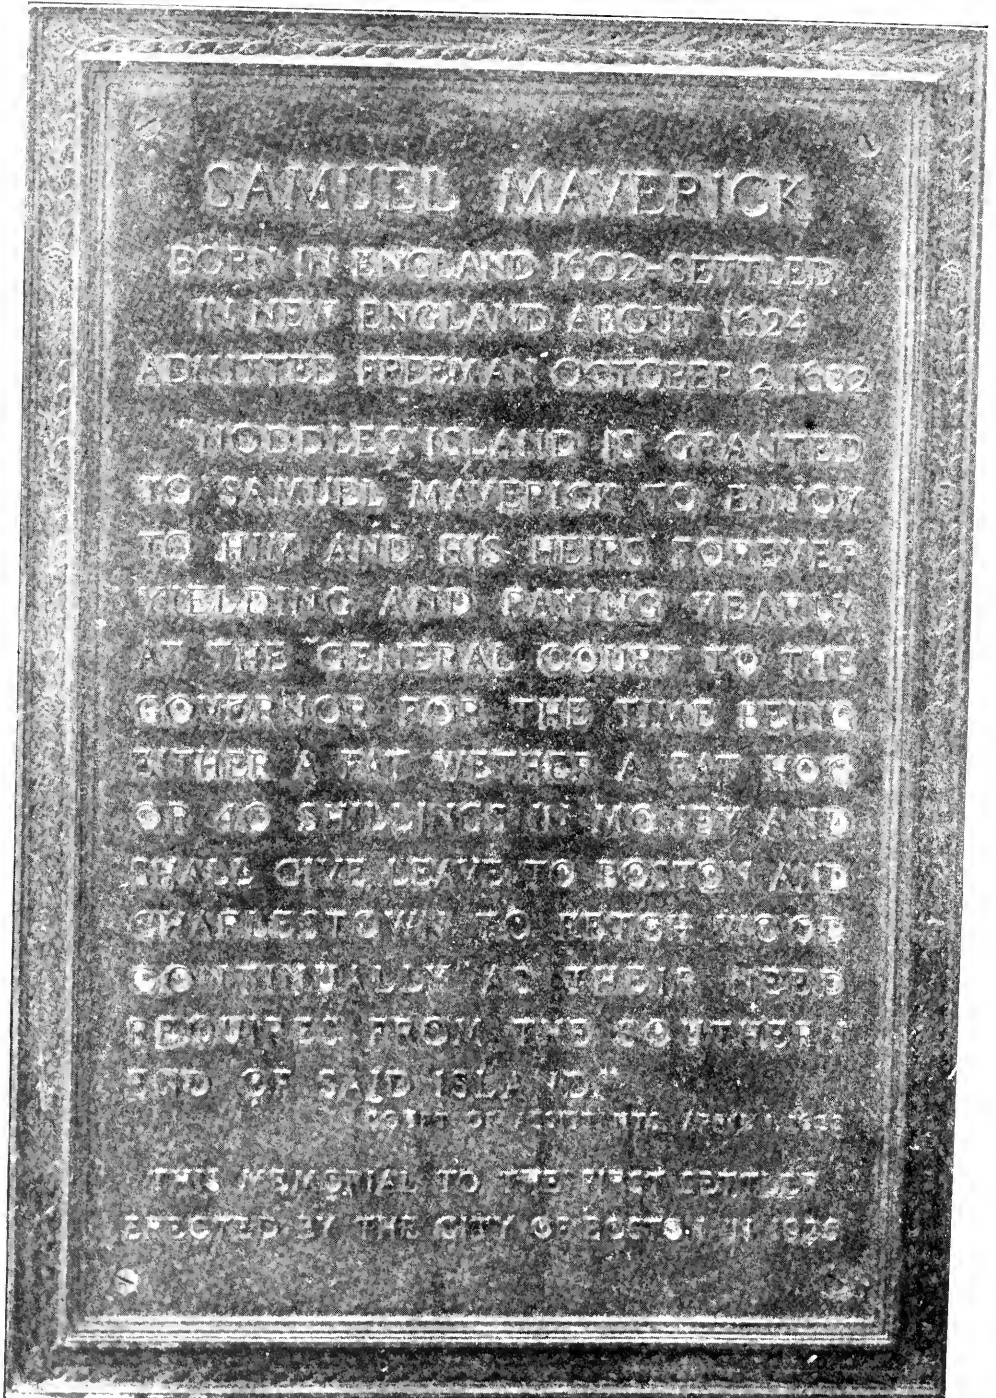 SAMUEL MAVERICK
BORN IN ENGLAND 1602-SETTLED
IN NEW ENGLAND ABOUT 1624
ADMITTED FREEMAN OCTOBER 2, 1632
"NODDLES ISLAND IS GRANTED
TO SAMUEL MAVERICK TO ENJOY
TO HIM AND HIS HEIRS FOREVER
YIELDING AND PAYING YEARLY
AT THE GENERAL COURT TO THE
GOVERNOR FOR THE TIME BEING
EITHER A FAT WETHER A FAT HOG
OR 40 SHILLINGS IN MONEY AND
SHALL GIVE LEAVE TO BOSTON AND
CHARLESTOWN TO FETCH WOOD
CONTINUALLY AS THEIR NEED
REQUIRES FROM THE SOUTHERN
END OF SAID ISLAND."
COURT OF ASSISTANTS, APRIL 1, 1633
THIS MEMORIAL TO THE FIRST SETTLER
ERECTED BY THE CITY OF BOSTON IN